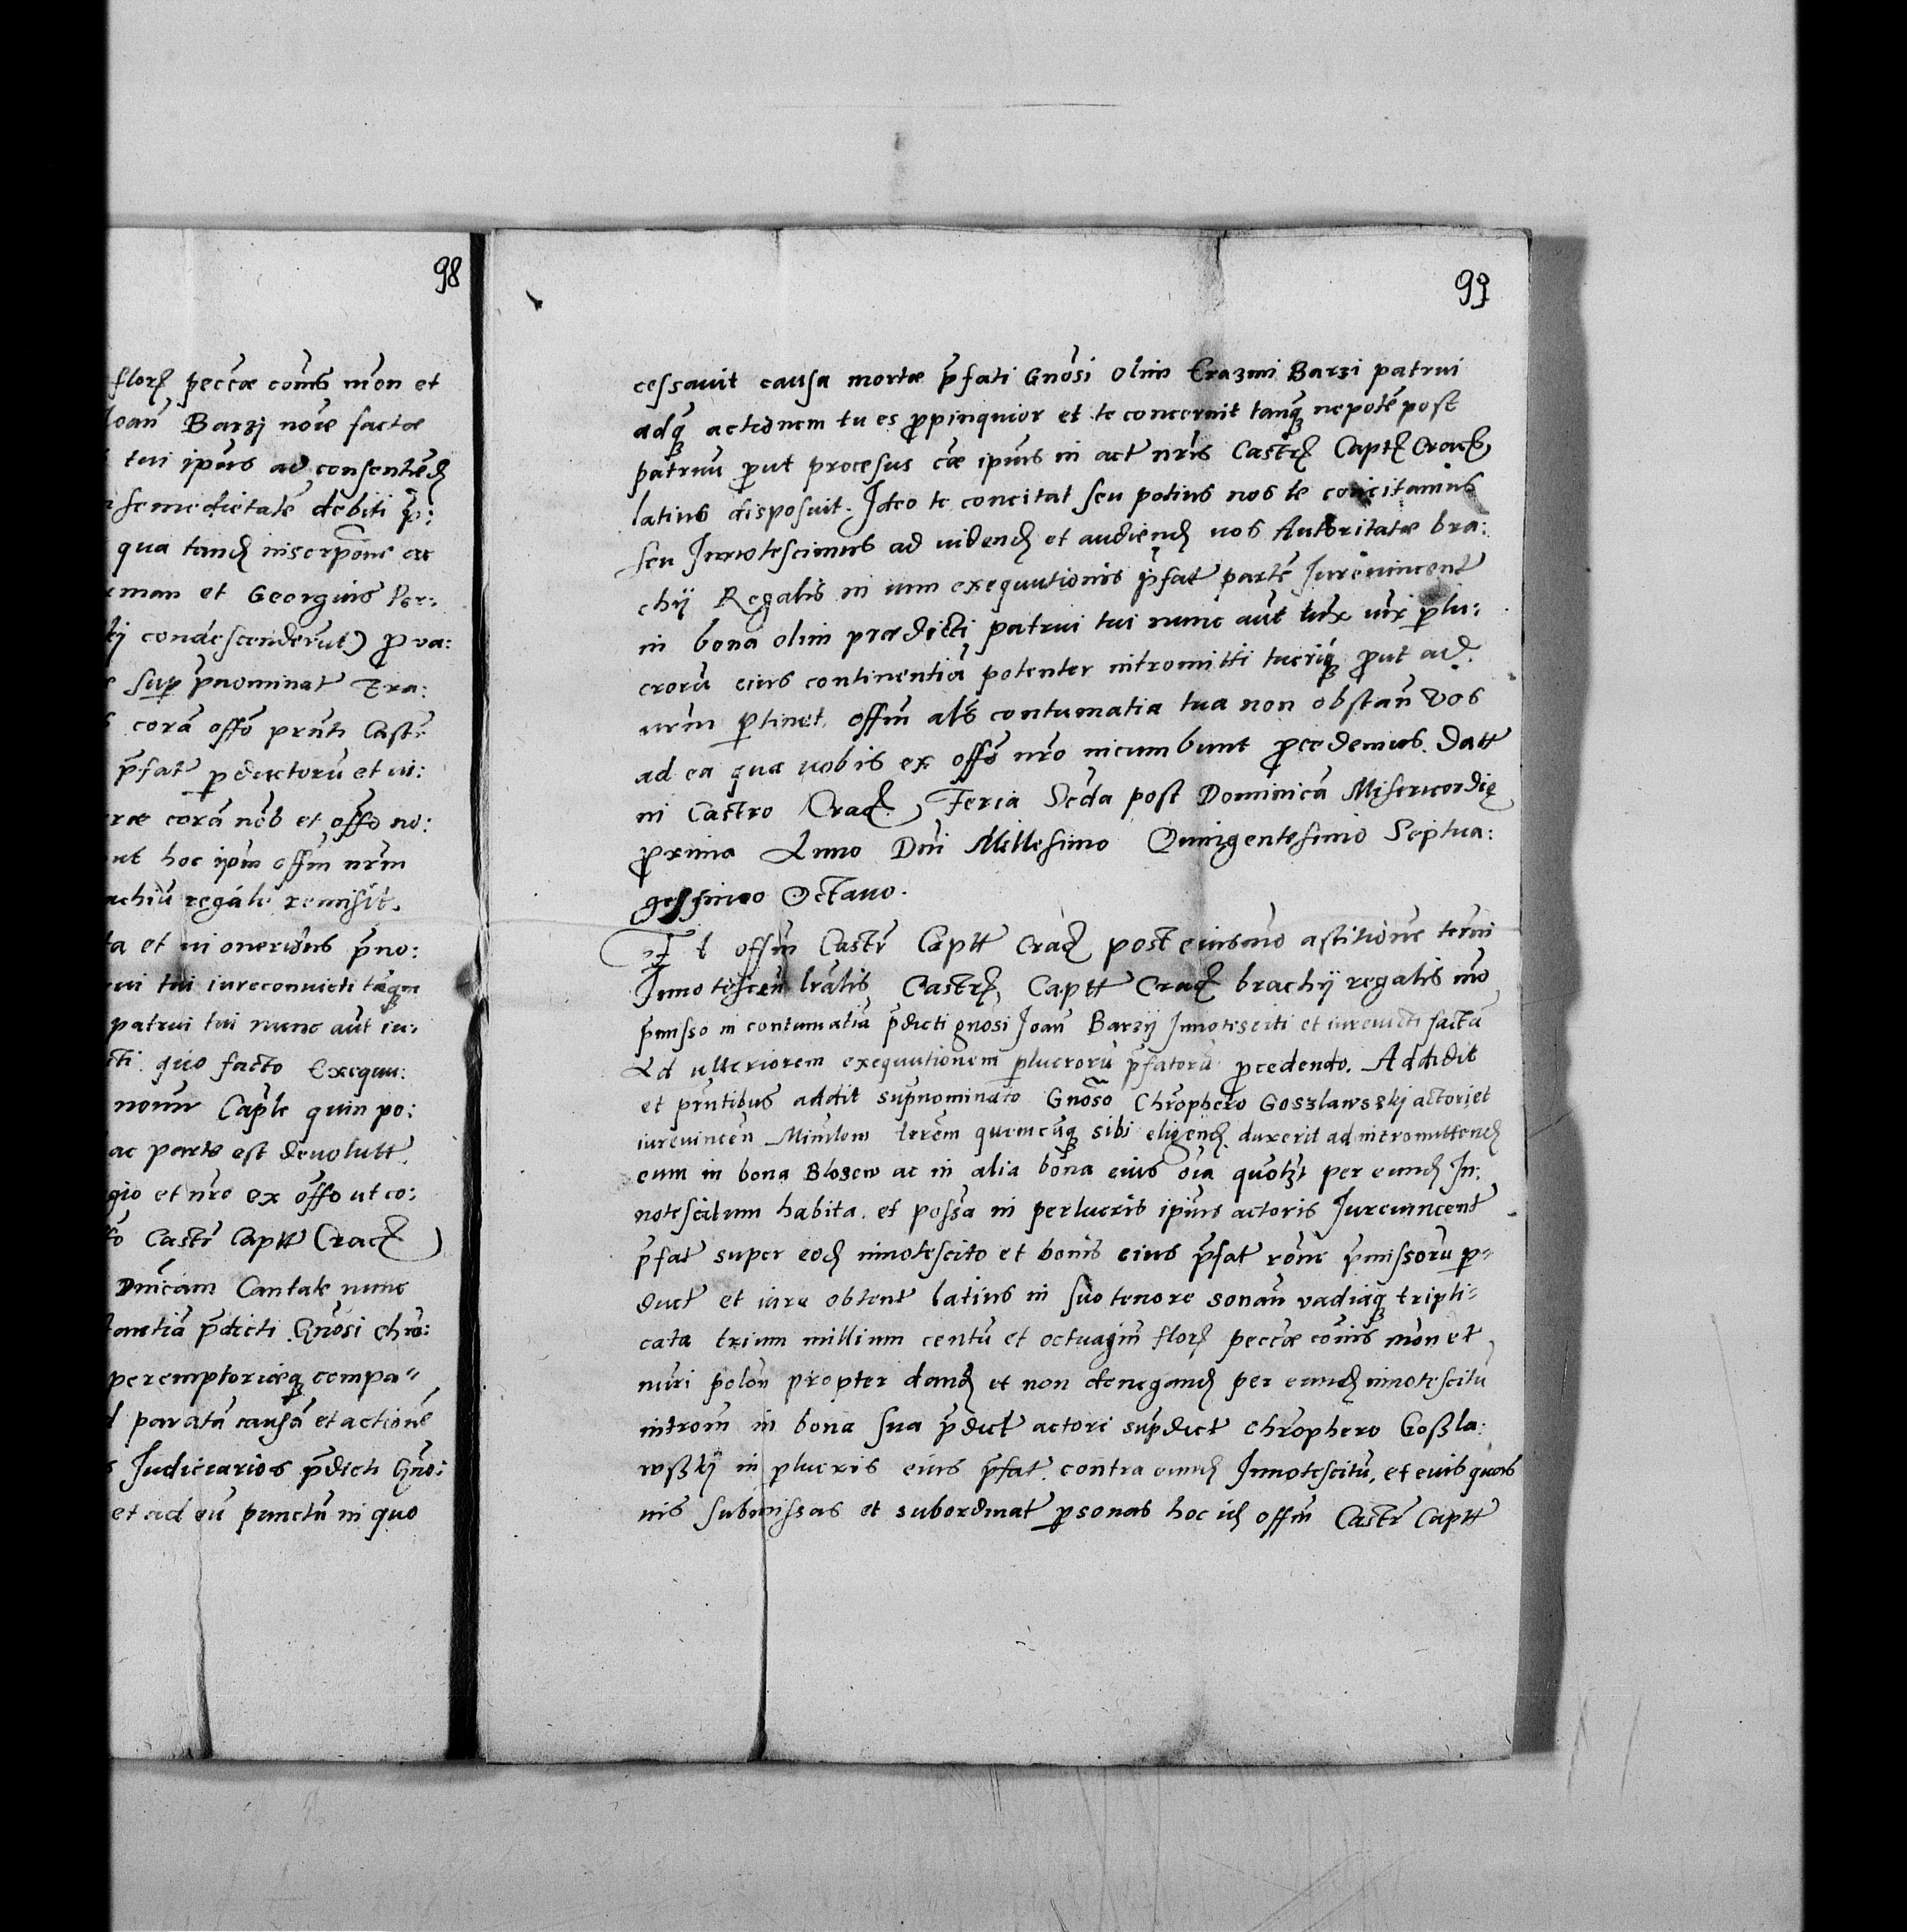 98
florʒ peccæ cōmis mōn et
Joan̄ Barzj noīe factæ
tui ipīus ad consentēdʒ
semedietatē debiti p̄:
qua tandʒ inscrp̄one
man et Georgius Per:
condescenderūt) pro va:
sup pn̄ominat Era:
corā offō pn̄ti Castr̄
p̄fat perductorū et ui:
corā nob̄ et offo no:
ut hoc ipm̄ offm̄ nr̄m
achiū regale remisit.
ta et ui oneribus p̄no:
tui iureconuicti tāqm
patrui tui nunc aūt iu:
quo facto Exequu:
Caplē quin po:
ac parte est deuolutt
gio et nr̄o ex offo ut co:
Castr̄ Captt Cracʒ)
Dn̄icam Cantate nunc
p̄dicti Gnōsi Chrō:
peremptoriæqʒ compa=
paratā causā et actionē
Judiciarios p̄dicti Gnō:
et ad eū punctū in quo
99
cessauit causa mortæ p̄fati Gnōsi olim Erazmi Barzi patrui
adqʒ actionem tu es propinquior et te concernit tanqʒ nepotē post
patruū prout procesus cæ ipīus in act nr̄is Castrʒ Captʒ Cracʒ
latius disposuit. Ideo te concitat seu potius nos te concitamus
seu Innotescimus ad uidendʒ et audiendʒ nos Autoritatæ bra:
chij Regalis in uim exequutionis p̄fat partē Jureuincent
in bona olim prædicti patrui tui nunc aūt tua perlu:
crorū eius continentiā potenter intromitti prout ad
nr̄m pertinet offm̄ alŝ contumatia tua non obstan̄ Vos
ad ea quæ nobis ex offō nr̄o incumbunt procedemus. Datt
in Castro Cracʒ. Feria Scda post Dominicā Misericordię
proxima Anno Dn̄i Millesimo Quingentesimo Septua:
gessimo Octauo.
Et offm̄ Castr̄ Captt Cracʒ post eiusmō astitionē termi
Innotescen̄ lr̄alis Castrʒ, Captt Cracʒ brachij regalis mō
p̄misso in contumatiā p̄dicti gnōsi Joan̄ Barzij Innotesciti et iureuicti factā
Ad ulteriorem exequutionem perlucrorū p̄fatorū procedendo. Addidit
et pr̄ntibus addit sup̄nominato Gnōso Chrōphero Goszlawszkj actori et
iureuincen̄ Minīlem terēm quemcūqʒ sibi eligendʒ duxerit ad intromittendʒ
eum in bona Blosew ac in alia bona eius oīa quotʒt per eundʒ In:
notescitum habita. et possā in perlucris ipīus actoris Jureuincent
p̄fat super eodʒ innotescito et bonis eius p̄fat rōne p̄missorū p=
duct et iure obtent latius in suo tenore sonan̄ vadiaqʒ tripli=
cata trium millium centū et octuagin̄ florʒ peccæ cōmis mōn et
nūri polōn propter dandʒ et non denegandʒ per eundʒ innotescitū
introm̄ in bona sua p̄dict actori supdict Chrōphero Goßla:
wßkij in perlucris eius p̄fat. contra eundʒ Innotescitū, et eius quas
uis submissas et subordinat personas hoc idʒ offm̄ Castr̄ Captt